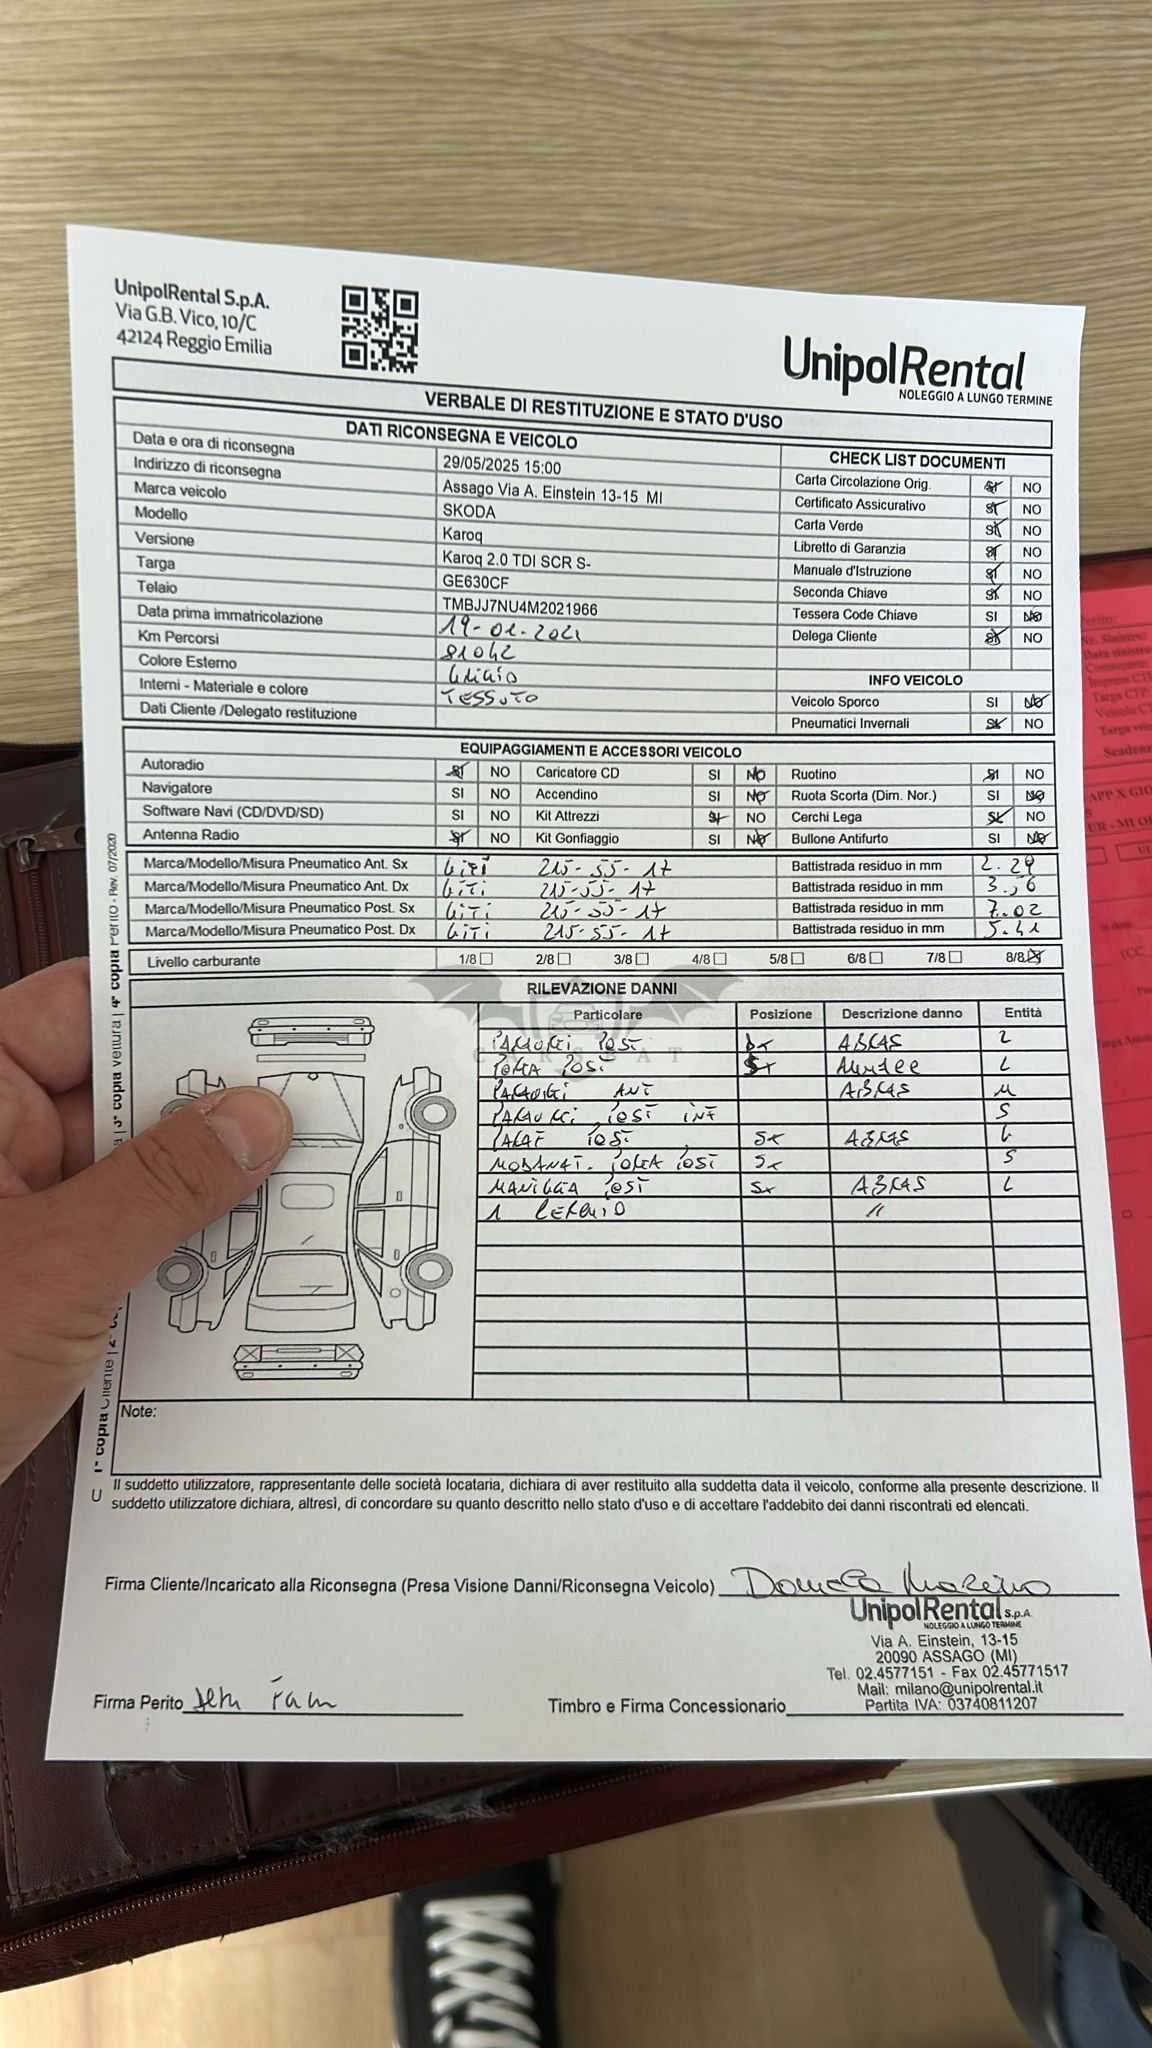 UnipolRental S.p.A.
Via G.B. Vico, 10/C
42124 Reggio Emilia
UnipolRental
NOLEGGIO A LUNGO TERMINE
VERBALE DI RESTITUZIONE E STATO D'USO
DATI RICONSEGNA E VEICOLO
Data e ora di riconsegna 29/05/2025 15:00
Indirizzo di riconsegna Assago Via A. Einstein 13-15 MI
Marca veicolo SKODA
Modello Karoq
Versione Karoq 2.0 TDI SCR S-
Targa GE630CF
Telaio TMBJJ7NU4M2021966
Data prima immatricolazione 19-01-2021
Km Percorsi 81042
Colore Esterno GRIGIO
Interni - Materiale e colore TESSUTO
Dati Cliente /Delegato restituzione
CHECK LIST DOCUMENTI
Carta Circolazione Orig. SI NO
Certificato Assicurativo SI NO
Carta Verde SI NO
Libretto di Garanzia SI NO
Manuale d'Istruzione SI NO
Seconda Chiave SI NO
Tessera Code Chiave SI NO
Delega Cliente SI NO
INFO VEICOLO
Veicolo Sporco SI NO
Pneumatici Invernali SI NO
EQUIPAGGIAMENTI E ACCESSORI VEICOLO
Autoradio SI NO Caricatore CD SI NO Ruotino SI NO
Navigatore SI NO Accendino SI NO Ruota Scorta (Dim. Nor.) SI NO
Software Navi (CD/DVD/SD) SI NO Kit Attrezzi SI NO Cerchi Lega SI NO
Antenna Radio SI NO Kit Gonfiaggio SI NO Bullone Antifurto SI NO
Marca/Modello/Misura Pneumatico Ant. Sx GITI 215-55-17 Battistrada residuo in mm 2.29
Marca/Modello/Misura Pneumatico Ant. Dx GITI 215-55-17 Battistrada residuo in mm 3.56
Marca/Modello/Misura Pneumatico Post. Sx GITI 215-55-17 Battistrada residuo in mm 7.02
Marca/Modello/Misura Pneumatico Post. Dx GITI 215-55-17 Battistrada residuo in mm 5.41
Livello carburante 1/8 2/8 3/8 4/8 5/8 6/8 7/8 8/8
RILEVAZIONE DANNI
Particolare Posizione Descrizione danno Entità
PARAURTI POST DX ABRAS L
PORTA POST SX L
PARAURTI ANT ABRAS M
PARAURTI POST INF S
PARAF POST SX ABRAS L
MODANAT. PORTA POST SX S
MANIGLIA POST SX ABRAS L
1 CERCHIO "
CARSBAT
Note:
Il suddetto utilizzatore, rappresentante delle società locataria, dichiara di aver restituito alla suddetta data il veicolo, conforme alla presente descrizione. Il
suddetto utilizzatore dichiara, altresì, di concordare su quanto descritto nello stato d'uso e di accettare l'addebito dei danni riscontrati ed elencati.
Firma Cliente/Incaricato alla Riconsegna (Presa Visione Danni/Riconsegna Veicolo)
UnipolRental S.P.A.
NOLEGGIO A LUNGO TERMINE
Via A. Einstein, 13-15
20090 ASSAGO (MI)
Tel. 02.4577151 - Fax 02.45771517
Mail: milano@unipolrental.it
Partita IVA: 03740811207
Firma Perito
Timbro e Firma Concessionario